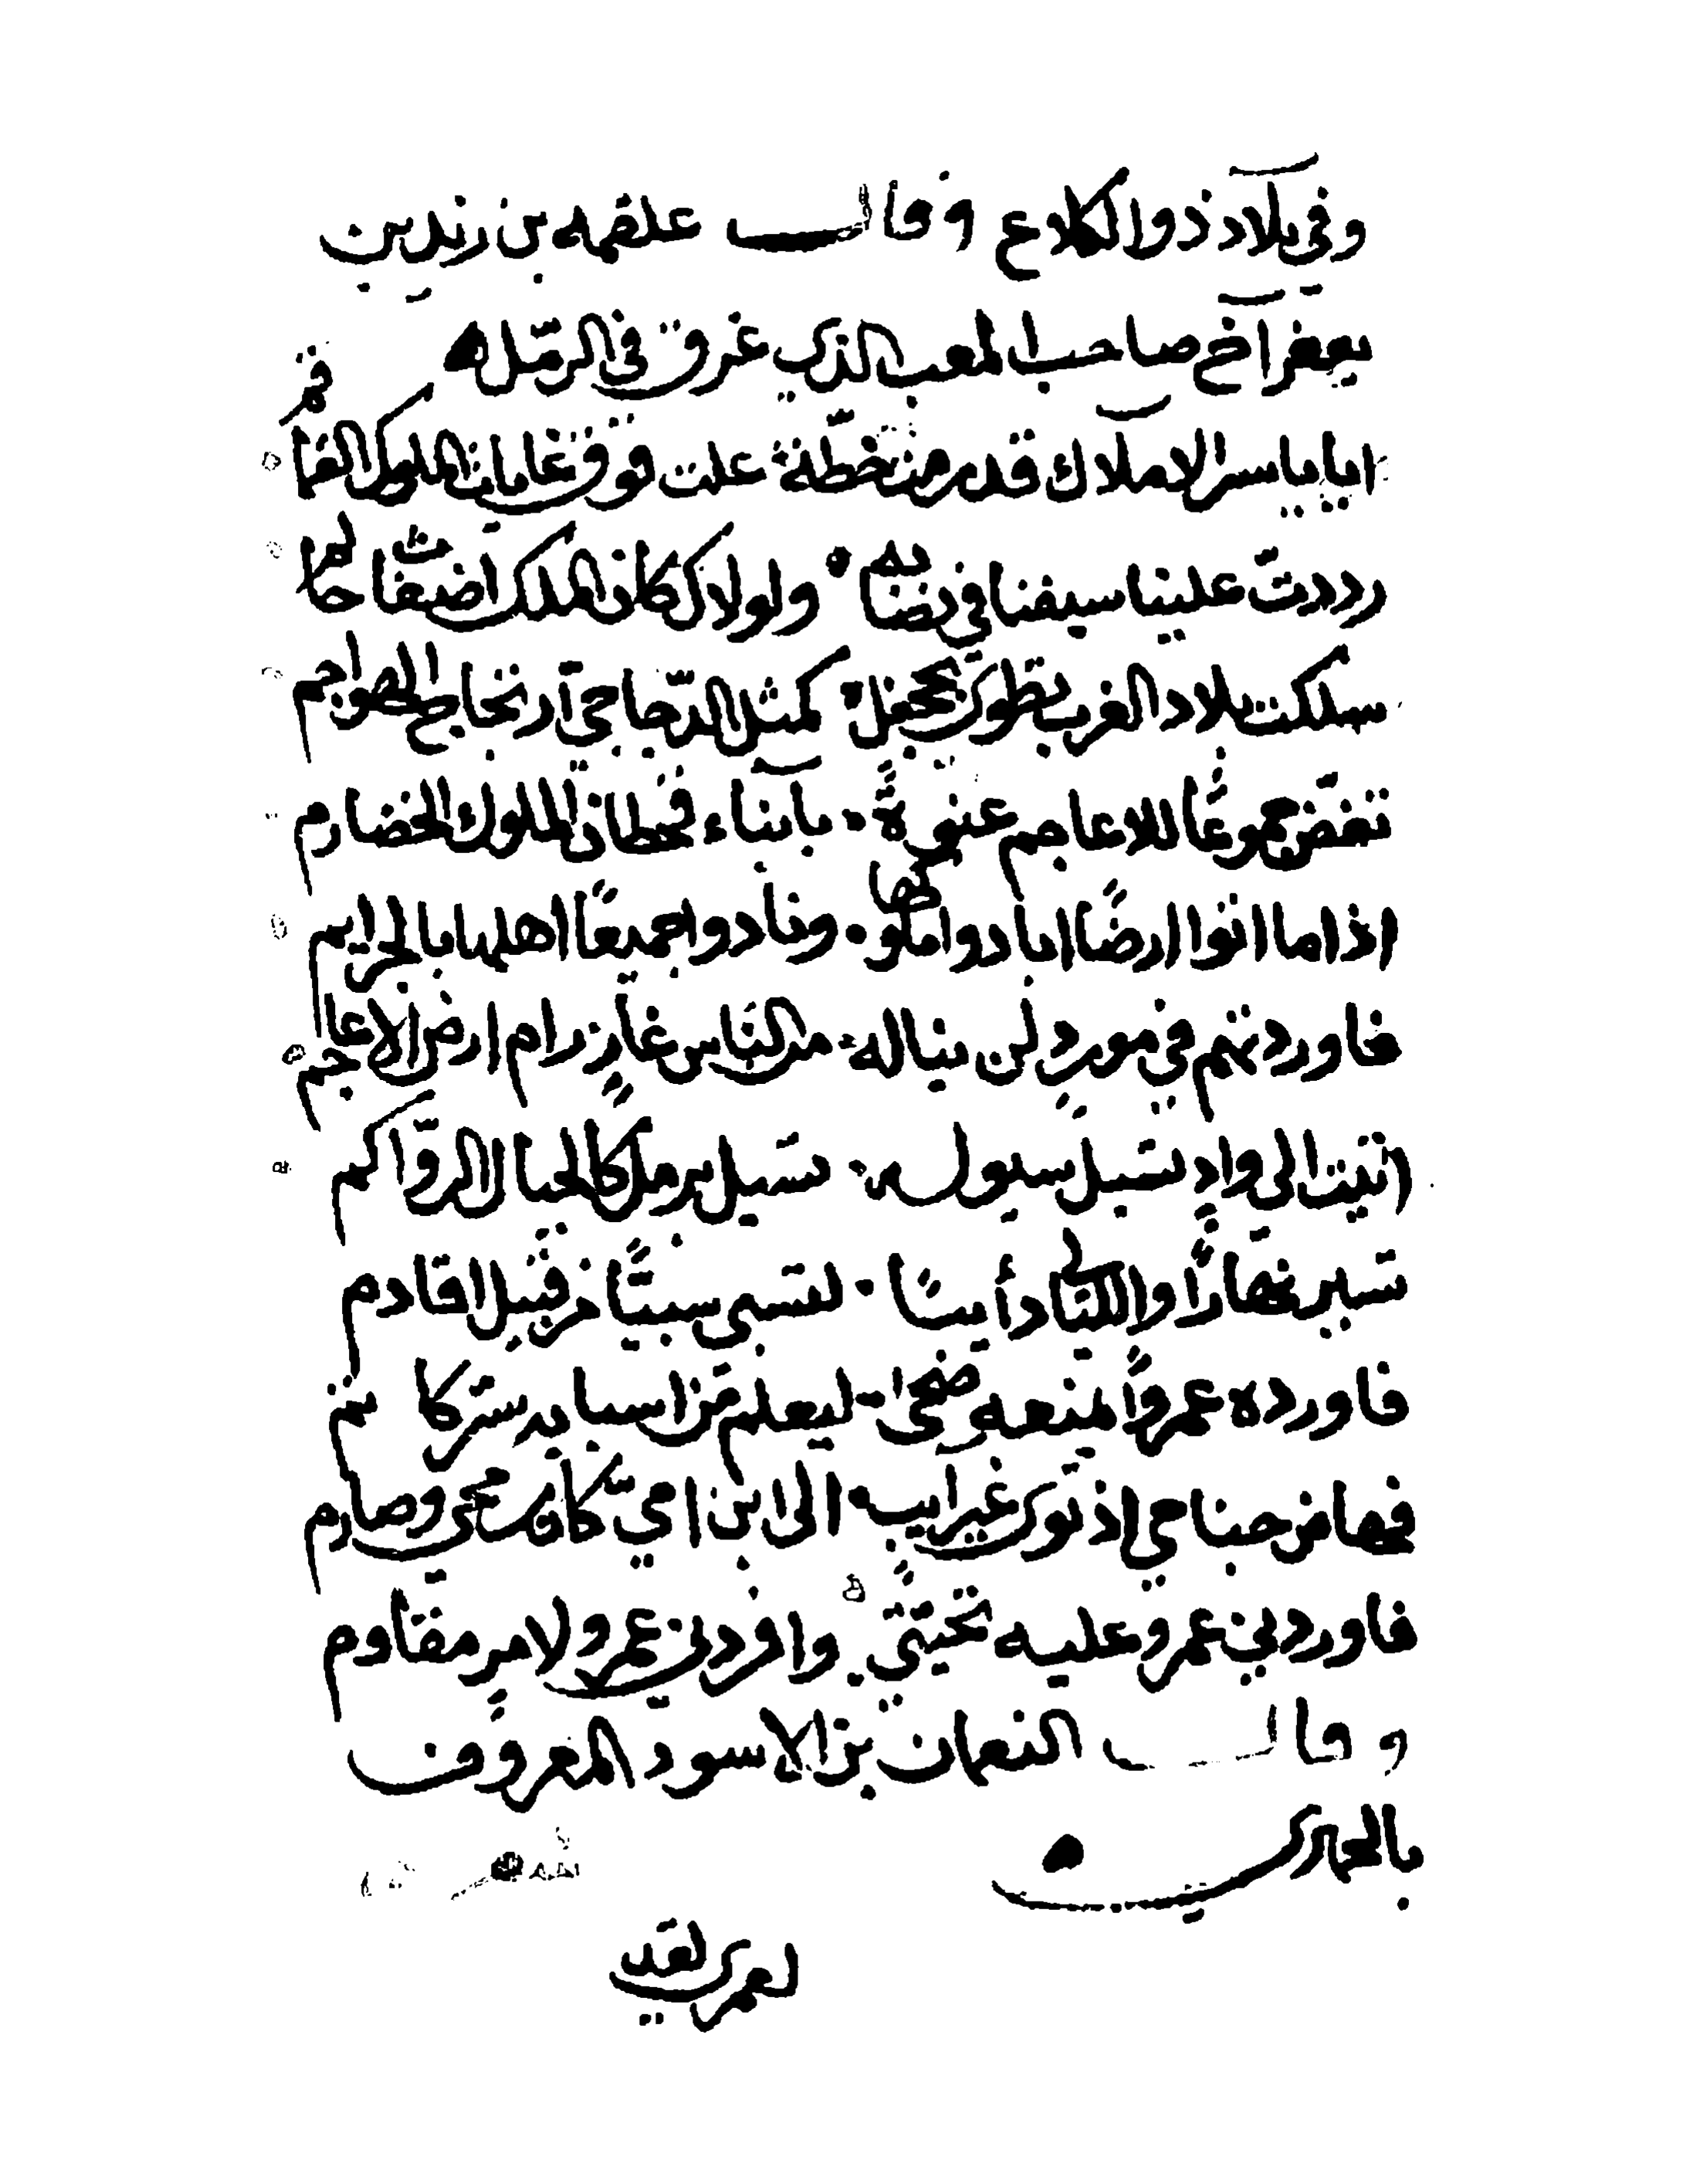 وفي بلاد ذوالكلاع وقالـــ علقمه بن زيد بن
يعفر آخ صاحب المعب الذي غرق في الرمل
ايا ياسر الاملاك قد رمت خطّة علت فوق غايات الملوك القماقم
رددت علينا سيفنا في نصابه ولولاك كان الملك اضغاث حالم
سلكت بلاد الغرب تطوى بجحفل كمثل الدّجاجي آرتجاج الهواجم
تفضّ جموعًا للاعاجم عنوةً بآبناء قحطان الملوك الخضارم
اذا ما اتوا ارضًا ابادوا ملوكها ونادوا جميعًا اهلها بالجرايم
فاوردتهم في موردٍ لن يناله من النّاس غازٍ رام ارض الاعاجم
اتيت الى وادٍ تسيل سيوله تسيل برمل كالجبال الرّواكم
تسير نهارًا والليالي دأيبًا لتسبي سبيًّا من قبل اقادم
فاورده عمروًا منعه ضحى ليعلم من اسبابه سركاتم
فهاض جناحي اذ توى غير آيب الى ابن امي كان رمحي وصارم
فاوردني عمرو عليه تحيّتي وافردني عمرو لامرٍ مقاوم
وقالـــ النعمان بن الاسود المعروف
بالحميري
لعمري لقد